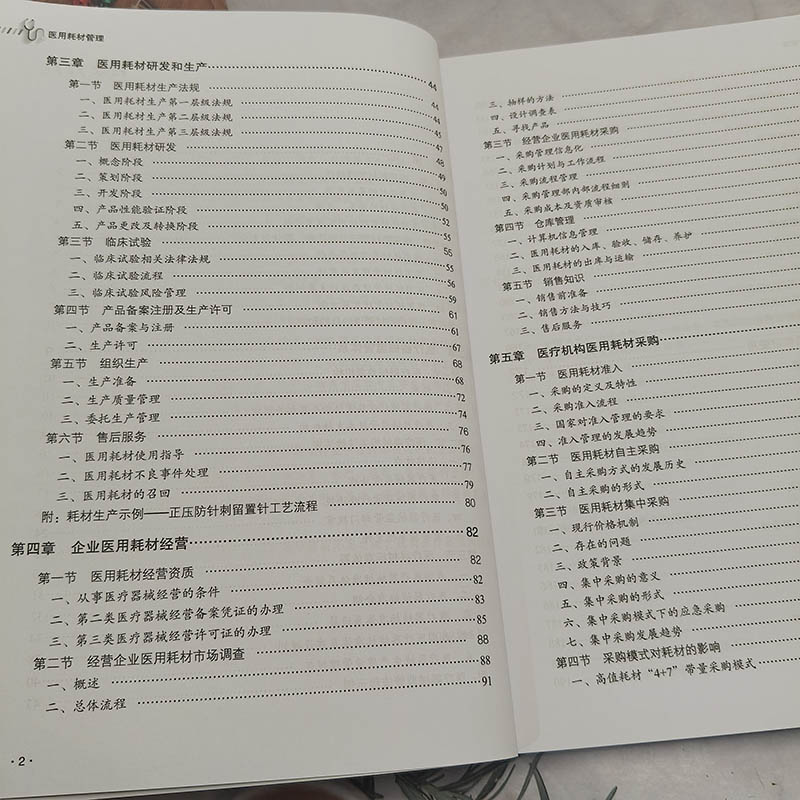 医用耗材管理
第三章 医用耗材研发和生产 44
第一节 医用耗材生产法规 44
一、医用耗材生产第一层级法规 44
二、医用耗材生产第二层级法规 44
三、医用耗材生产第三层级法规 45
第二节 医用耗材研发 47
一、概念阶段 48
二、策划阶段 49
三、开发阶段 50
四、产品性能验证阶段 50
五、产品更改及转换阶段 52
第三节 临床试验 55
一、临床试验相关法律法规 55
二、临床试验流程 56
三、临床试验风险管理 59
第四节 产品备案注册及生产许可 61
一、产品备案与注册 61
二、生产许可 67
第五节 组织生产 68
一、生产准备 68
二、生产质量管理 72
三、委托生产管理 74
第六节 售后服务 76
一、医用耗材使用指导 76
二、医用耗材不良事件处理 77
三、医用耗材的召回 79
附：耗材生产示例——正压防针刺留置针工艺流程 80
第四章 企业医用耗材经营 82
第一节 医用耗材经营资质 82
一、从事医疗器械经营的条件 82
二、第二类医疗器械经营备案凭证的办理 83
三、第三类医疗器械经营许可证的办理 85
第二节 经营企业医用耗材市场调查 88
一、概述 88
二、总体流程 91
·2·
三、抽样的方法
四、设计调查表
五、寻找产品
第三节 经营企业医用耗材采购
一、采购管理信息化
二、采购计划与工作流程
三、采购流程管理
四、采购管理部内部流程细则
五、采购成本及资质审核
第四节 仓库管理
一、计算机信息管理
二、医用耗材的入库、验收、储存、养护
三、医用耗材的出库与运输
第五节 销售知识
一、销售前准备
二、销售方法与技巧
三、售后服务
第五章 医疗机构医用耗材采购
第一节 医用耗材准入
一、采购的定义及特性
二、采购准入流程
三、国家对准入管理的要求
四、准入管理的发展趋势
第二节 医用耗材自主采购
一、自主采购方式的发展历史
二、自主采购的形式
第三节 医用耗材集中采购
一、现行价格机制
二、存在的问题
三、政策背景
四、集中采购的意义
五、集中采购的形式
六、集中采购模式下的应急采购
七、集中采购发展趋势
第四节 采购模式对耗材的影响
一、高值耗材“4+7”带量采购模式